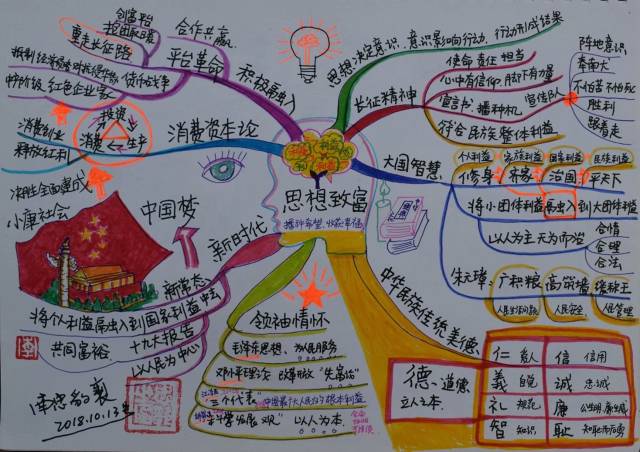 思想致富
播种希望,收获幸福
思想决定意识,意识影响行动,行动形成结果
长征精神
使命 责任 担当
心中有信仰,脚下有力量
宣言书,播种机,宣传队
符合民族整体利益
阵地意识
奉献大
不怕苦不怕死
胜利
跟着走
大国智慧
个人利益 家族利益 国家利益 民族利益
修身 齐家 治国 平天下
将小团体利益融入到大团体利益
以人为主,天为而治
合情
合理
合法
朱元璋:
广积粮 高筑墙 缓称王
人民生活问题 人民安全 人民管理
中华民族传统美德
德:道德
立人之本
仁 爱人 信 信用
義 自觉 诚 忠诚
礼 规范 廉
智 知识 耻 知耻而后勇
领袖情怀
毛泽东思想、为人民服务
邓小平理论 改革开放 "先富论"
三个代表
中国最广大人民的根本利益
科学发展观 以人为本
新时代
新常态
将个人利益融入到国家利益中去
十九大报告
共同富裕
以人民为中心
中国梦
决胜全面建成
小康社会
消费资本论
投资
消费 生产
消费创业
释放红利
积极融入
合作共赢
平台革命
创富平台
重走长征路
货币战争
红色企业家
2018.10.13